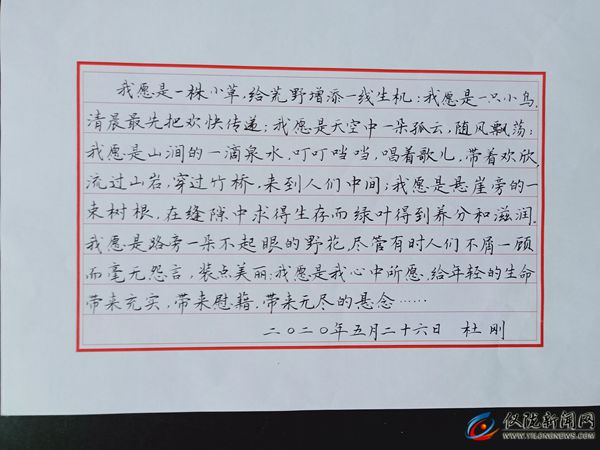 我愿是一株小草,给荒野增添一线生机;我愿是一只小鸟,
清晨最先把欢快传递;我愿是天空中一朵孤云,随风飘荡;
我愿是山涧的一滴泉水,叮叮当当,唱着歌儿,带着欢欣,
流过山岩,穿过竹桥,来到人们中间;我愿是悬崖旁的一
束树根,在缝隙中求得生存而绿叶得到养分和滋润.
我愿是路旁一朵不起眼的野花,尽管有时人们不屑一顾
而毫无怨言,装点美丽;我愿是我心中所愿,给年轻的生命
带来充实,带来慰藉,带来无尽的悬念……
二〇二〇年五月二十六日 杜刚
仪陇新闻网
WWW.YILONGNEWS.COM